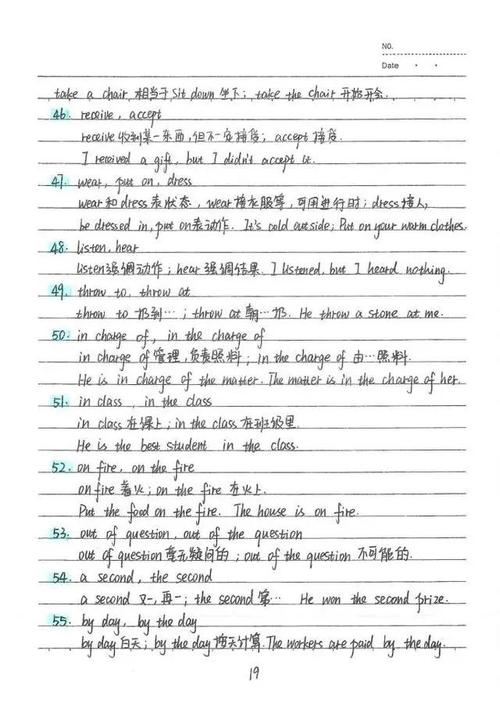 NO.
Date
take a chair 相当于 sit down 坐下; take the chair 开始开会.
46. receive, accept
receive 收到某一东西, 但不一定接受; accept 接受.
I received a gift, but I didn't accept it.
47. wear, put on, dress
wear和dress表状态, wear接衣服等, 可用进行时; dress接人,
be dressed in, put on表动作. It's cold outside; Put on your warm clothes.
48. listen, hear
listen强调动作; hear强调结果. I listened, but I heard nothing.
49. throw to, throw at
throw to 扔到…; throw at 朝…扔. He throw a stone at me.
50. in charge of, in the charge of
in charge of 管理, 负责照料; in the charge of 由…照料.
He is in charge of the matter. The matter is in the charge of her.
51. in class, in the class
in class 在课上; in the class 在班级里.
He is the best student in the class.
52. on fire, on the fire
on fire 着火; on the fire 在火上.
Put the food on the fire. The house is on fire.
53. out of question, out of the question
out of question 毫无疑问的; out of the question 不可能的.
54. a second, the second
a second 又一, 再一; the second 第… He won the second prize.
55. by day, by the day
by day 白天; by the day 按天计算. The workers are paid by the day.
19